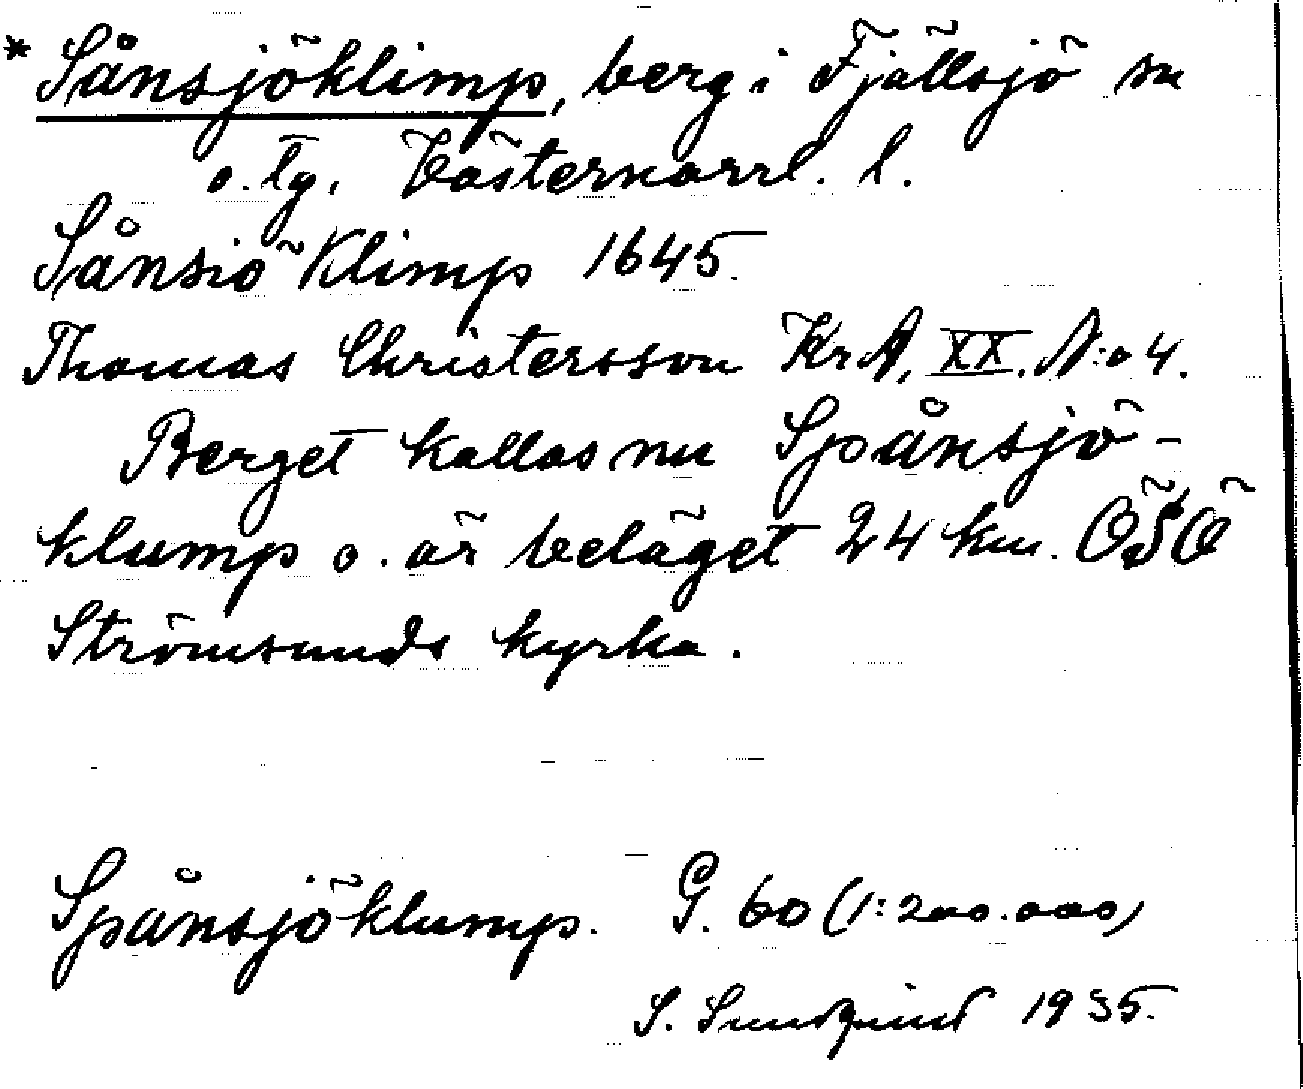 * Sånsjöklimp, berg i Fjällsjö sn
o. tg. Västernorrl. l.
Sånsiö Klimp 1645.
Thomas Christersson KrA, XX. N:o 4.
Berget kallas nu Spånsjö-
klump o. är beläget 24 km. ÖSÖ
Strömsunds kyrka.
Spånsjöklump. G. 60 (1:200.000)
S. Sundquist 1935.